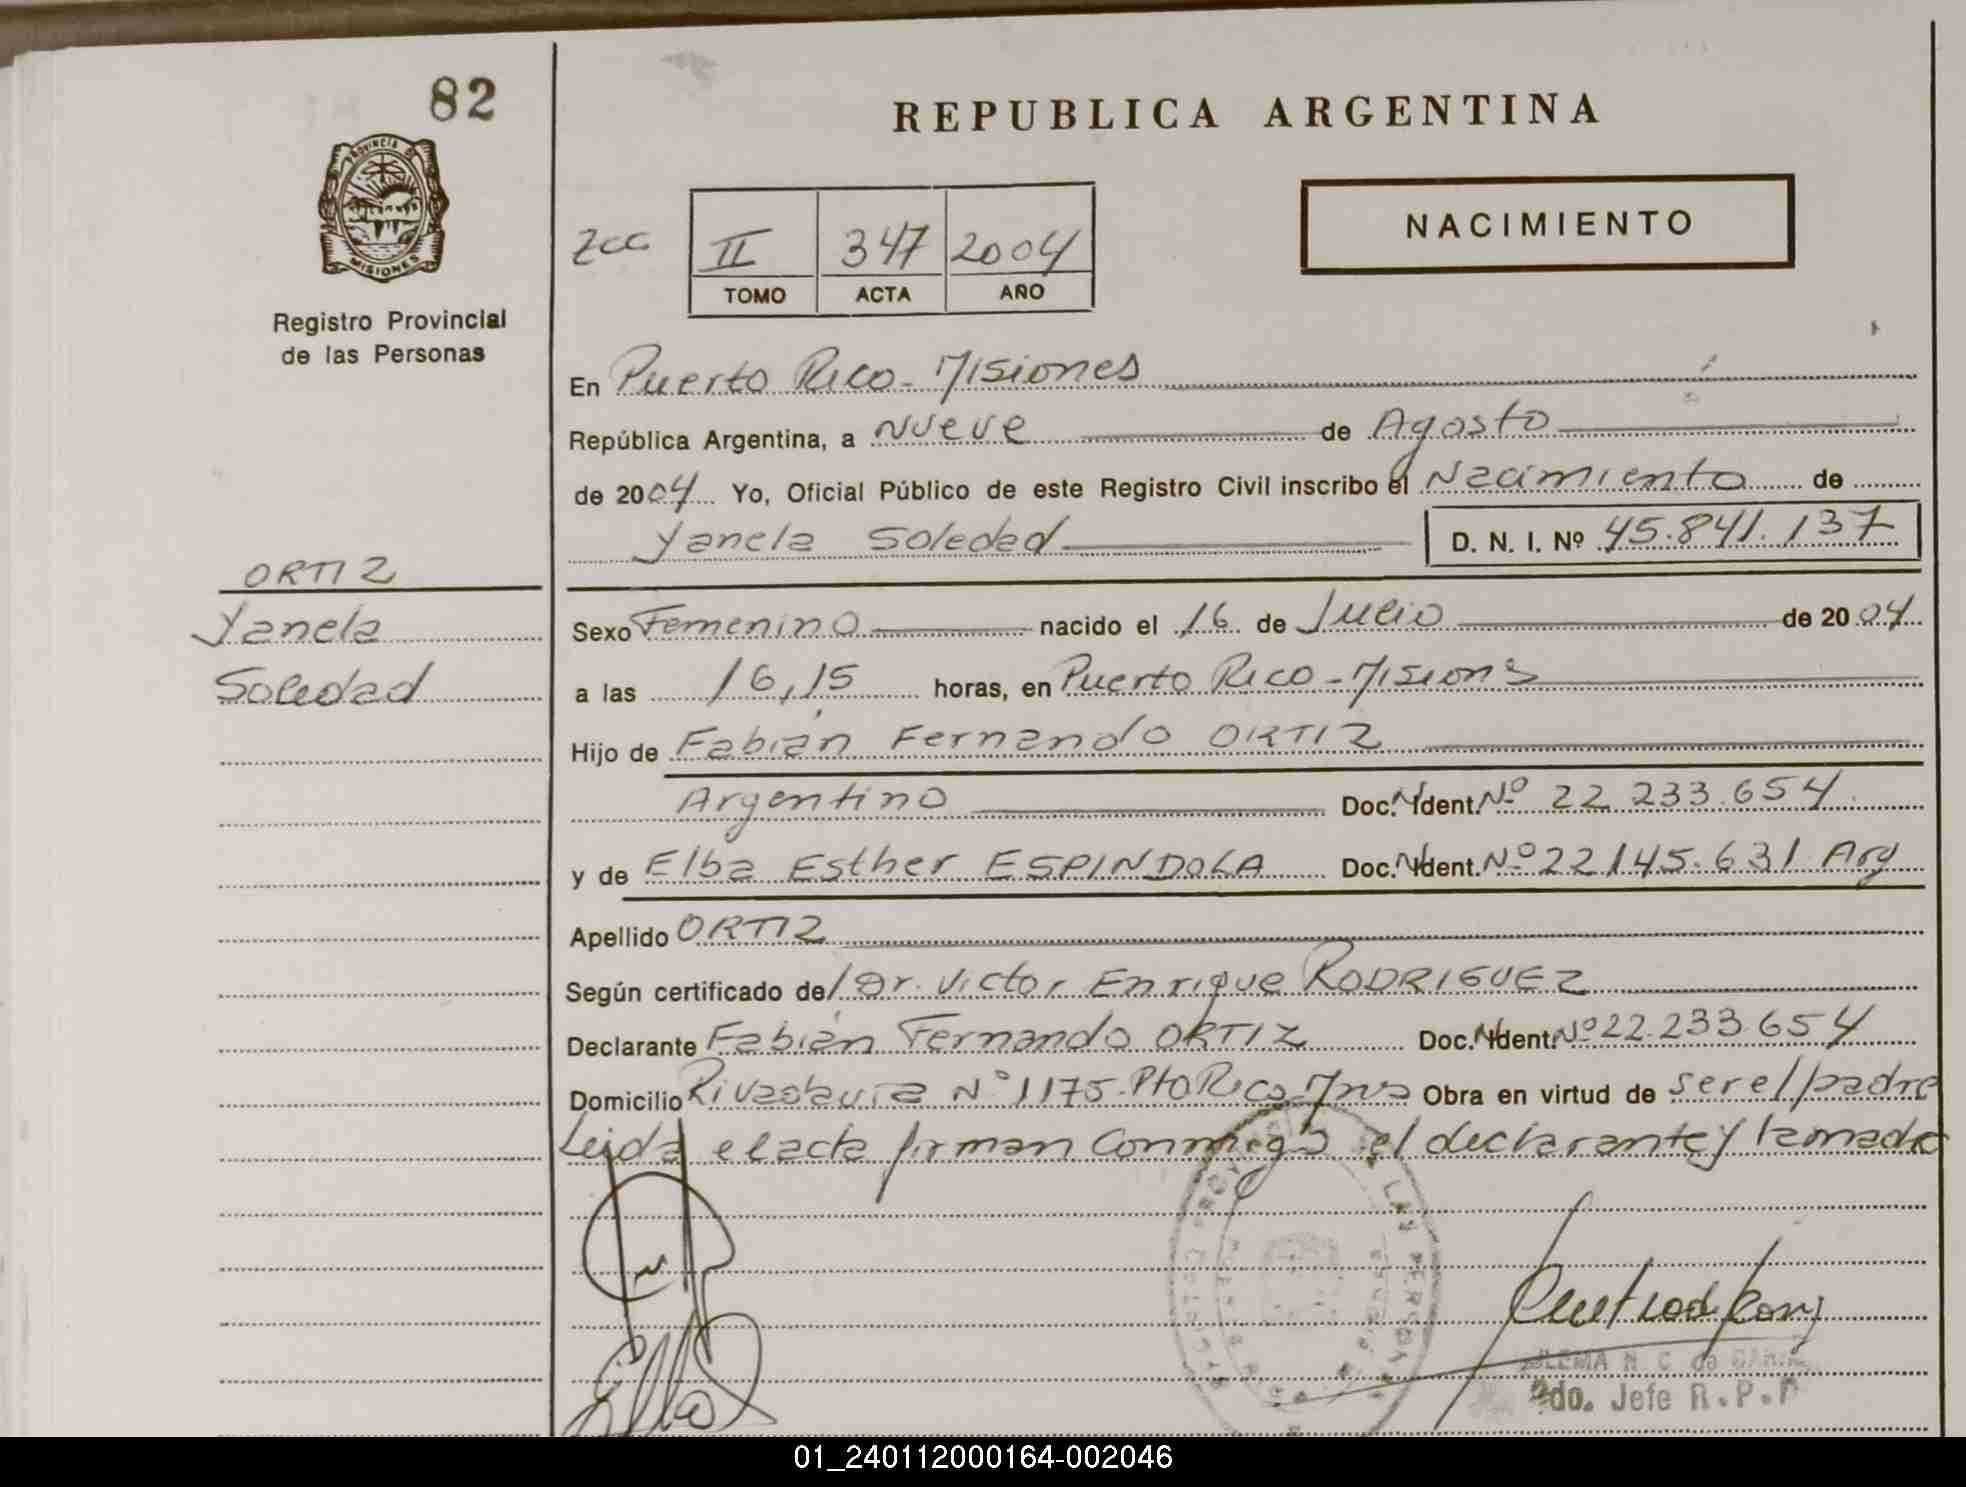 82
REPUBLICA ARGENTINA
PROVINCIA DE
MISIONES
Registro Provincial
de las Personas
NACIMIENTO
II 347 2004
TOMO ACTA AÑO
En Puerto Rico - Misiones
República Argentina, a Nueve de Agosto
de 2004 Yo, Oficial Público de este Registro Civil inscribo el Nacimiento de
Yanela Soledad D. N. I. Nº 45.841.137
ORTIZ
Yanela
Soledad
Sexo Femenino nacido el 16 de Julio de 2004
a las 16,15 horas, en Puerto Rico - Misions
Hijo de Fabián Fernando ORTIZ
Argentino Doc. Ident. Nº 22 233.654
y de Elba Esther ESPINDOLA Doc. Ident. Nº 22145.631 Arg
Apellido ORTIZ
Según certificado del Dr. Victor Enrique RODRIGUEZ
Declarante Fabián Fernando ORTIZ Doc. Ident. Nº 22.233.654
Domicilio Rivadavia Nº 1175 - Pto Rico - Mns Obra en virtud de ser el padre
Leida el acta firman conmigo el declarante y la madre
2do. Jefe R.P.P
01_240112000164-002046